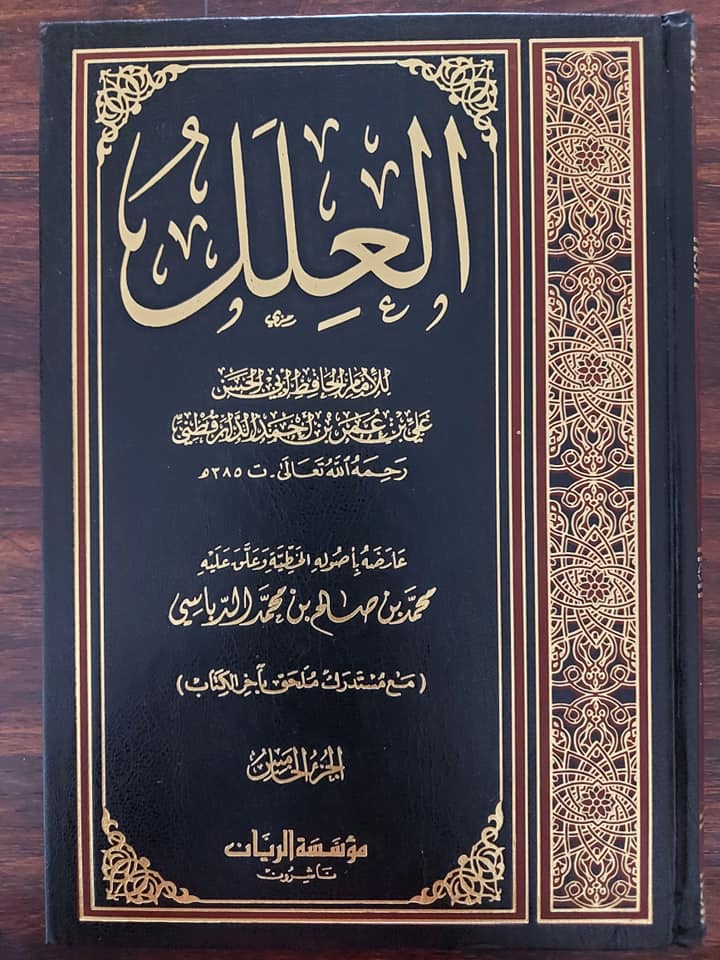 العِلَلُ
للإمام الحافظ أبي الحسن
علي بن عُمَر بن أحمد الدارقطني
رَحِمَهُ اللهُ تَعَالَى - ت ٣٨٥ هـ
عَارَضَهُ بِأصُولِهِ الخَطِّيَّةِ وَعَلَّقَ عَلَيْهِ
محمّد بن صالح بن محمّد الدّباسي
( مَعَ مُسْتَدرَكٍ مُلحَقٍ بآخِرِ الكِتَاب )
الجزء الخامس
مؤسَسَة الريَان
نَاشِرُون